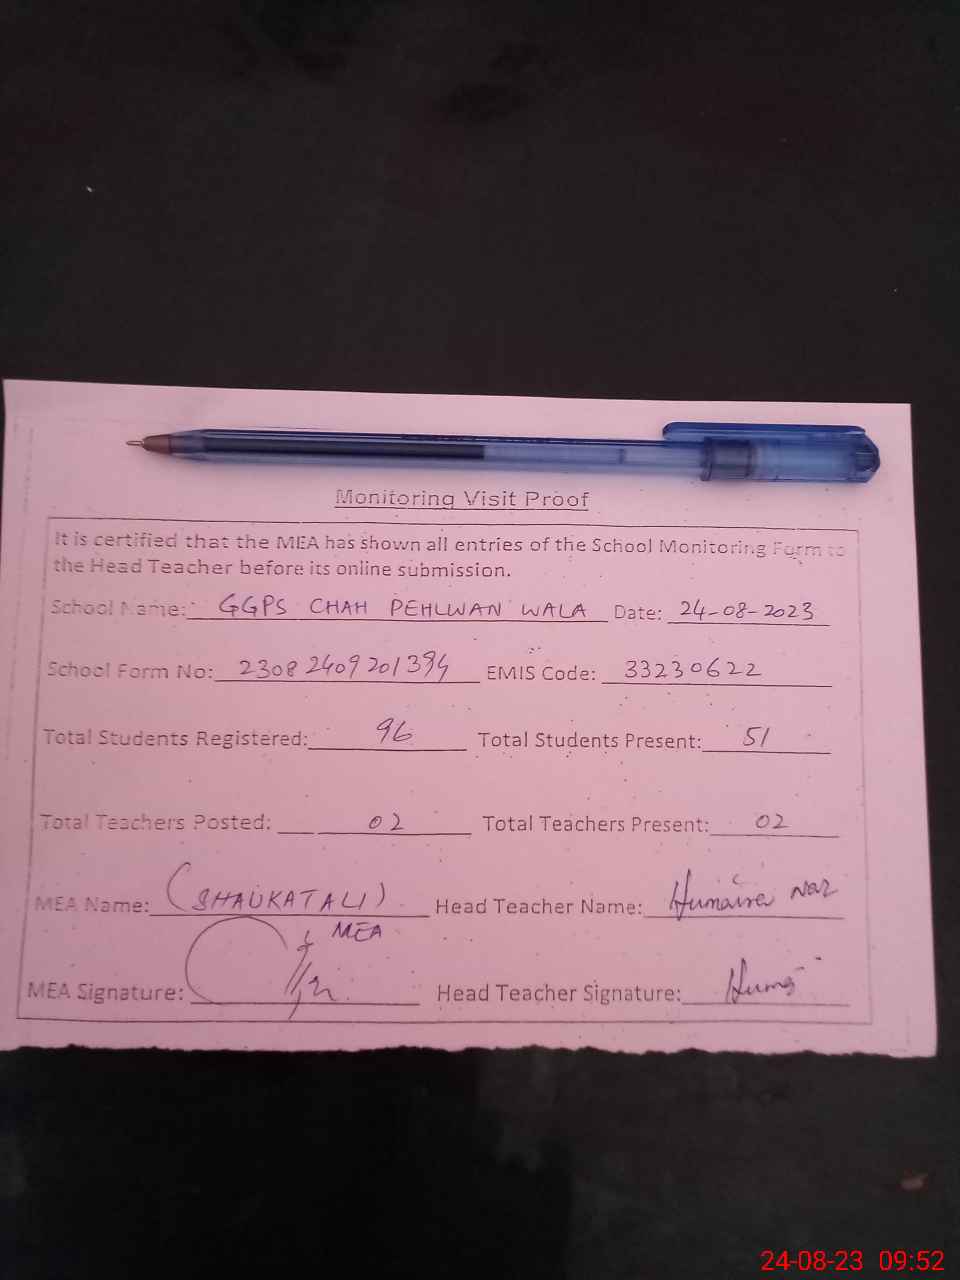 Monitoring Visit Proof
It is certified that the MEA has shown all entries of the School Monitoring Form to
the Head Teacher before its online submission.
School Name: GGPS CHAH PEHLWAN WALA Date: 24-08-2023
School Form No: 23082409201394 EMIS Code: 33230622
Total Students Registered: 96 Total Students Present: 51
Total Teachers Posted: 02 Total Teachers Present: 02
MEA Name: (SHAUKAT ALI) Head Teacher Name: Humaira Naz
MEA
MEA Signature: Head Teacher Signature: Huma
24-08-23 09:52